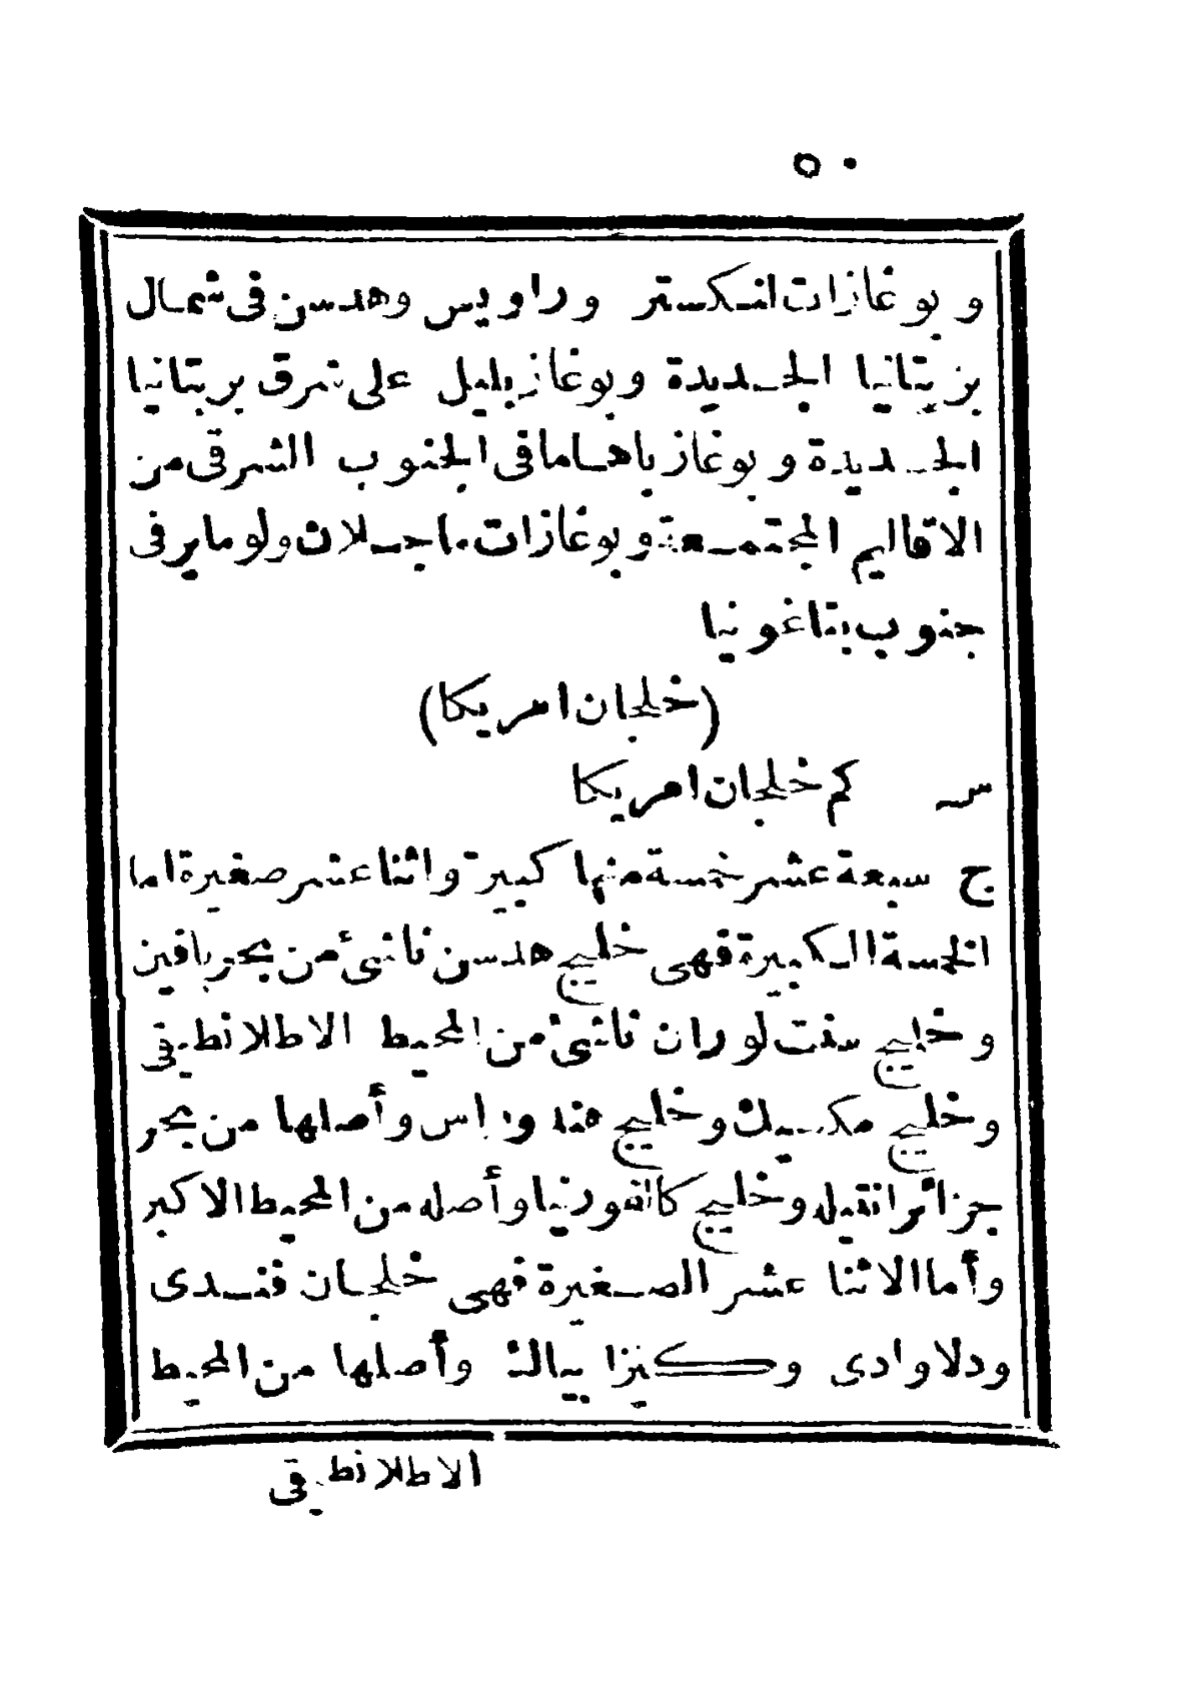 ٥٠
وبوغازات انكستر وراويس وهدسن فى شمال
بريتانيا الجديدة وبوغاز بليل على شرق بريتانيا
الجديدة وبوغاز باهاما فى الجنوب الشرقى من
الاقاليم المجتمعة وبوغازات ماجلان ولوماير فى
جنوب بتاغونيا
(خلجان امريكا)
س كم خلجان امريكا
ج سبعة عشر خمسة منها كبيرة واثنا عشر صغيرة اما
الخمسة الكبيرة فهى خليج هدسن ناشئ من بحر بافين
وخليج سنت لوران ناشئ من المحيط الاطلانطيقى
وخليج مكسيك وخليج هندوراس وأصلها من بحر
جزائر انتيله وخليج كالفورنيا وأصله من المحيط الاكبر
وأما الاثنا عشر الصغيرة فهى خلجان فندى
ودلاوادى وكنزا بيالك وأصلها من المحيط
الاطلانطيقى